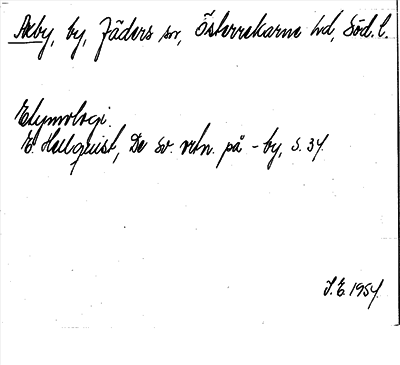 Åby, by, Jäders sn, Österrekarne hd, Söd. l.
Etymologi.
E. Hellquist, De sv. ortn. på -by, s. 34.
J.E. 1954.